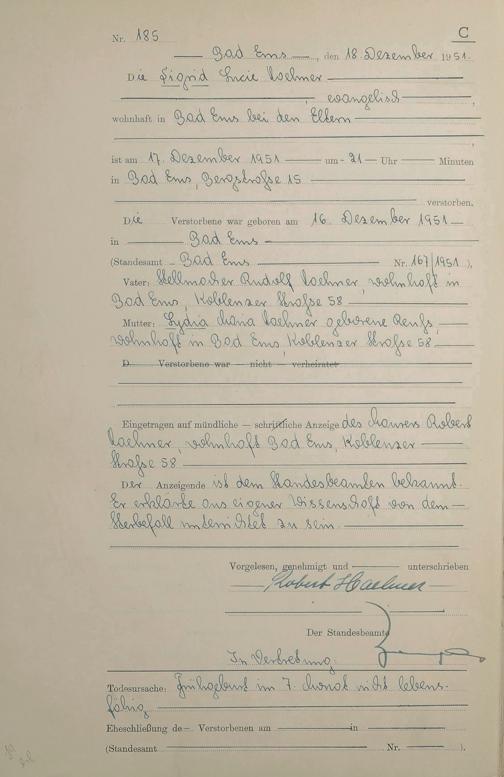 Nr. 185 C
Bad Ems, den 18. Dezember 1951.
Die Sigrid Lucie Haehner
evangelisch,
wohnhaft in Bad Ems bei den Eltern
ist am 17. Dezember 1951 um 21 Uhr Minuten
in Bad Ems, Bergstraße 15
verstorben.
Die Verstorbene war geboren am 16. Dezember 1951
in Bad Ems
(Standesamt Bad Ems Nr. 167/1951).
Vater: Stellmacher Rudolf Haehner, wohnhaft in
Bad Ems, Koblenzer Straße 58
Mutter: Lydia Maria Haehner geborene
wohnhaft in Bad Ems, Koblenzer Straße 58
D Verstorbene war — nicht — verheiratet
Eingetragen auf mündliche — schriftliche Anzeige des Maurers Robert
Haehner, wohnhaft Bad Ems, Koblenzer
Straße 58
Der Anzeigende ist dem Standesbeamten bekannt.
Er erklärte aus eigener Wissenschaft von dem
Sterbefall unterrichtet zu sein
Vorgelesen, genehmigt und unterschrieben
Robert Haehner
Der Standesbeamte
In Vertretung:
Todesursache: Frühgeburt im 7. Monat nicht lebens-
fähig
Eheschließung de Verstorbenen am in
(Standesamt Nr. ).